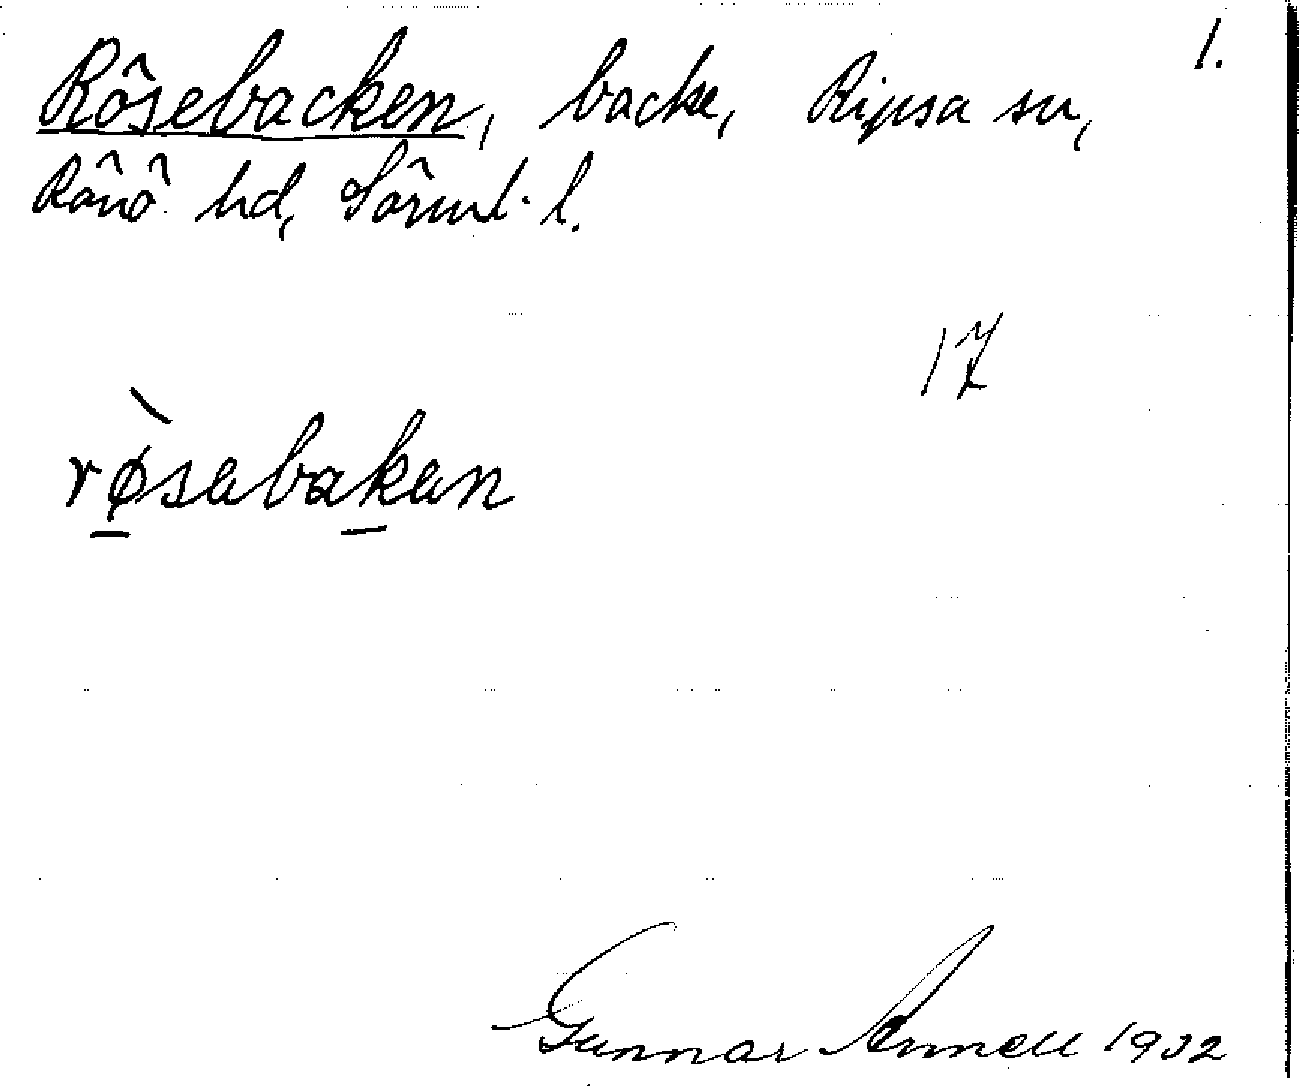 1.
Rôsebacken, backe, Ripsa sn,
Rônô hd, Sôrml. l.
17
rø̀sabakan
Gunnar Annell 1932